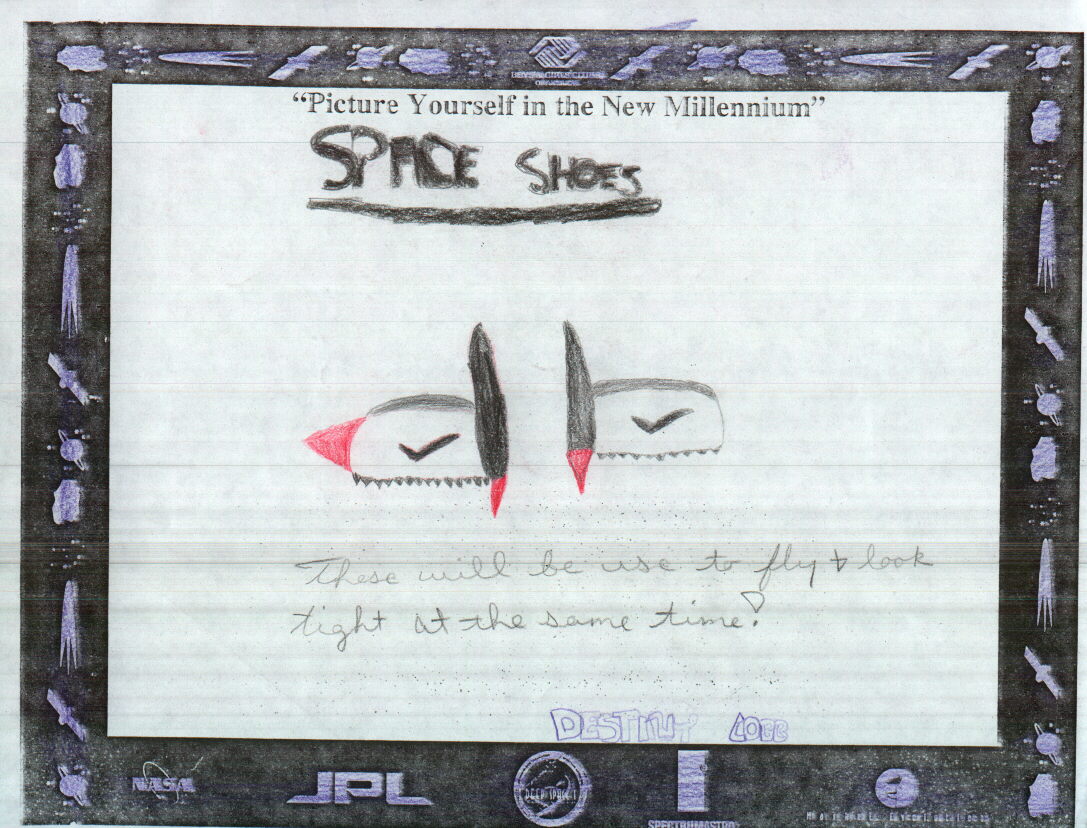 "Picture Yourself in the New Millennium"
SPACE SHOES
These will be use to fly & look
tight at the same time!
DESTINY COBB
NASA
JPL
DEEP SPACE 1
SPECTRUMASTRO